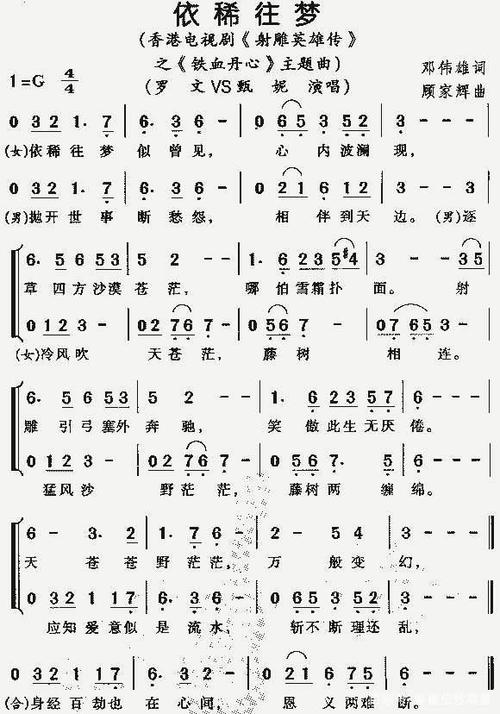 依稀往梦
(香港电视剧《射雕英雄传》
之《铁血丹心》主题曲)
(罗 文VS甄 妮 演唱)
邓伟雄词
顾家辉曲
1=G 4/4
0 3 2 1. 7 | 6. 3 6 - | 0 6 5 3 5 2 | 3 - - - |
(女)依稀往梦 似曾见, 心内波澜现,
0 3 2 1. 7 | 6. 3 6 - | 0 2 1 6 1 2 | 3 - - 3 |
(男)抛开世事 断愁怨, 相伴到天边。(男)逐
6. 5 6 5 3 | 5 2 - - | 1. 6 2 3 5 #4 | 3 - - 3 5 |
草 四方沙漠苍茫, 哪怕雪霜扑 面。 射
0 1 2 3 - | 0 2 7 6 7 - | 0 5 6 7 - | 0 7 6 5 3 - |
(女)冷风吹 天苍茫, 藤树 相连。
6. 5 6 5 3 | 5 2 - - | 1. 6 2 3 5 7 | 6 - - - |
雕 引弓塞外奔驰, 笑傲此生无厌倦。
0 1 2 3 - | 0 2 7 6 7 - | 0 5 6 7. 5 | 6 - - - |
猛风沙 野茫茫, 藤树两 缠绵。
6 - 3. 2 | 1. 7 6 - | 2 - 5 4 | 3 - - - |
天 苍苍野茫茫, 万 般变幻,
0 3 2 1 1 7 | 6. 3 6 - | 0 6 5 3 5 2 | 3 - - - |
应知爱意似是流水, 斩不断理还乱,
0 3 2 1 1 7 | 6. 3 6 - | 0 2 1 6 7 5 | 6 - - - |
(合)身经百劫也 在心间, 恩 义两难 断。